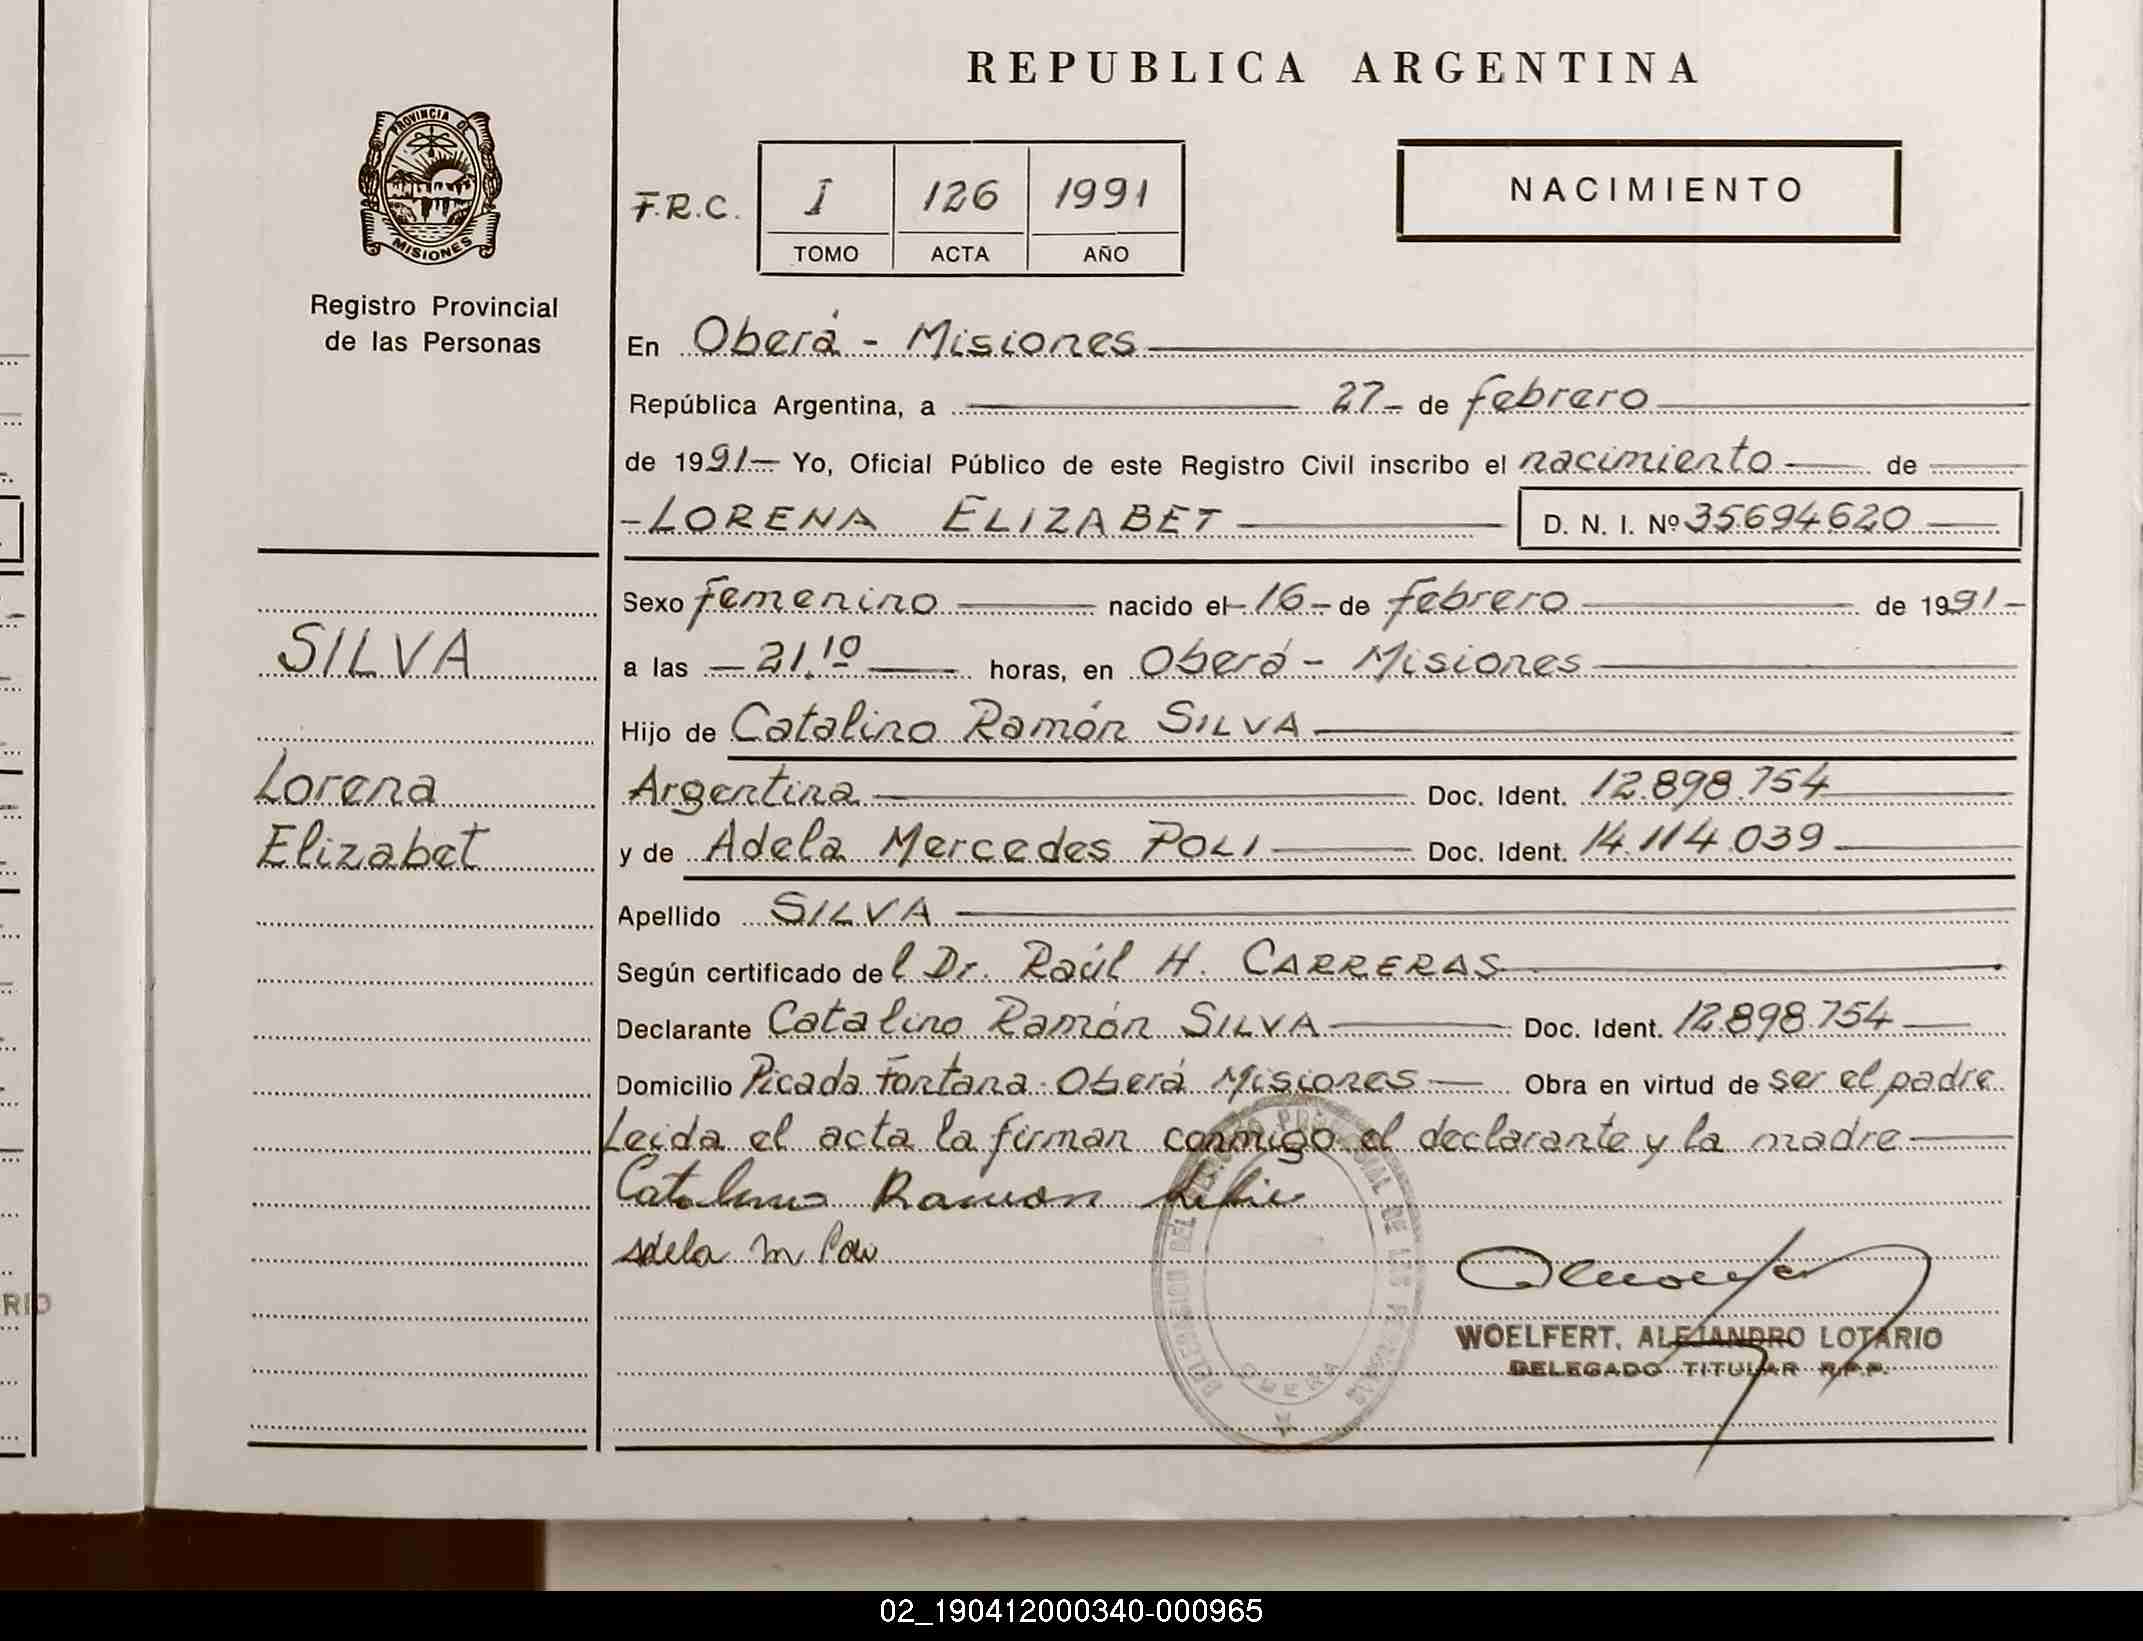 REPUBLICA ARGENTINA
PROVINCIA DE
MISIONES
Registro Provincial
de las Personas
F.R.C.
I 126 1991
TOMO ACTA AÑO
NACIMIENTO
En Oberá - Misiones
República Argentina, a 27 - de febrero
de 1991 - Yo, Oficial Público de este Registro Civil inscribo el nacimiento de
- LORENA ELIZABET D. N. I. Nº 35694620
SILVA
Lorena
Elizabet
Sexo femenino nacido el - 16 - de febrero de 1991 -
a las - 21.10 horas, en Oberá - Misiones
Hijo de Catalino Ramón SILVA
Argentina Doc. Ident. 12.898.754
y de Adela Mercedes POLI Doc. Ident. 14.114.039
Apellido SILVA
Según certificado del Dr. Raúl H. CARRERAS
Declarante Catalino Ramón SILVA Doc. Ident. 12.898.754
Domicilio Picada Fontana - Oberá Misiones Obra en virtud de ser el padre
Leida el acta la firman conmigo el declarante y la madre
Catalino Ramon
Adela M
DELEGACION DEL REGISTRO PROVINCIAL DE LAS PERSONAS
OBERA
WOELFERT, ALEJANDRO LOTARIO
DELEGADO TITULAR R.P.P.
RIO
02_190412000340-000965